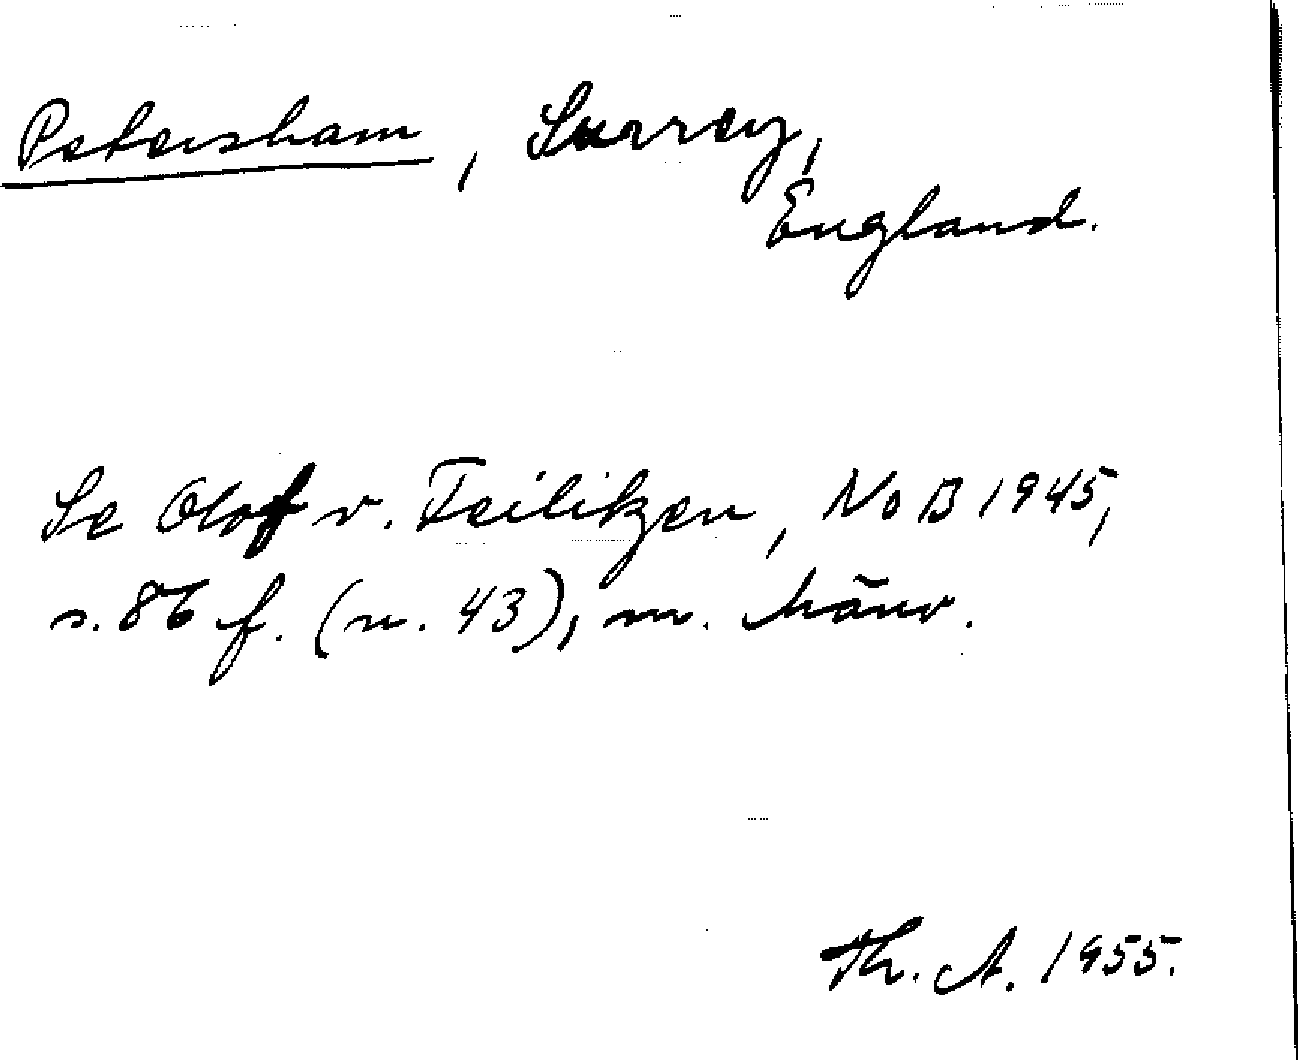 Petersham, Surrey,
England.
Se Olof v. Feilitzen, NoB 1945,
s. 86 f. (n. 43), m. hänv.
Th. A. 1955.